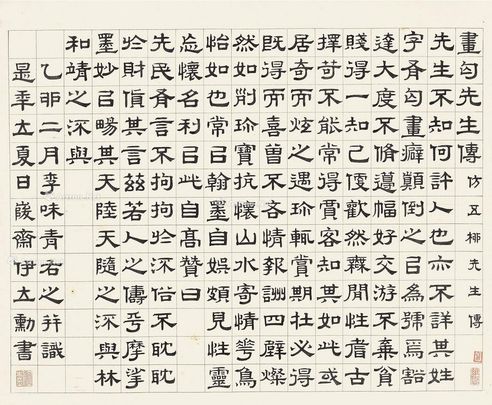 畫匄先生傳 仿五柳先生傳
先生不知何許人也亦不詳其姓
字有匄畫癖顛倒之㠯為號焉豁
達大度不脩邊幅好交游不棄貧
賤得一知己便歡然無閒性耆古
擇苛不能常得賓客知其如此或
居奇而炫之遇珍輒賞期在必得
既得而喜曾不吝情報詶四壁燦
然如削珍寶抗懷山水寄情花鳥
怡如也常㠯翰墨自娛頗見性靈
忘懷名利㠯此自高贊曰
先民有言不拘拘於流俗不耽耽
於財傎其言茲若人之儔乎摩挲
墨妙㠯暢其天陸天隨之流與林
和靖之流與
乙卯二月李味青名之并識
是年立夏日峻齋伊立勳書